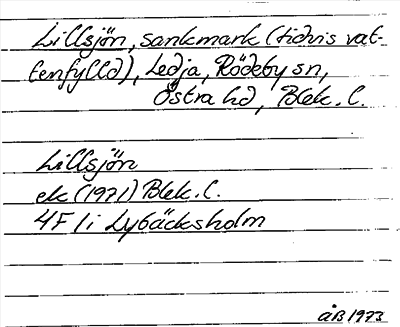 Lillsjön, sankmark (tidvis vat-
tenfylld), Ledja, Rödeby sn,
Östra hd, Blek. l.
Lillsjön
ek (1971) Blek. l.
4F 1i Lybäcksholm
ÅB 1973